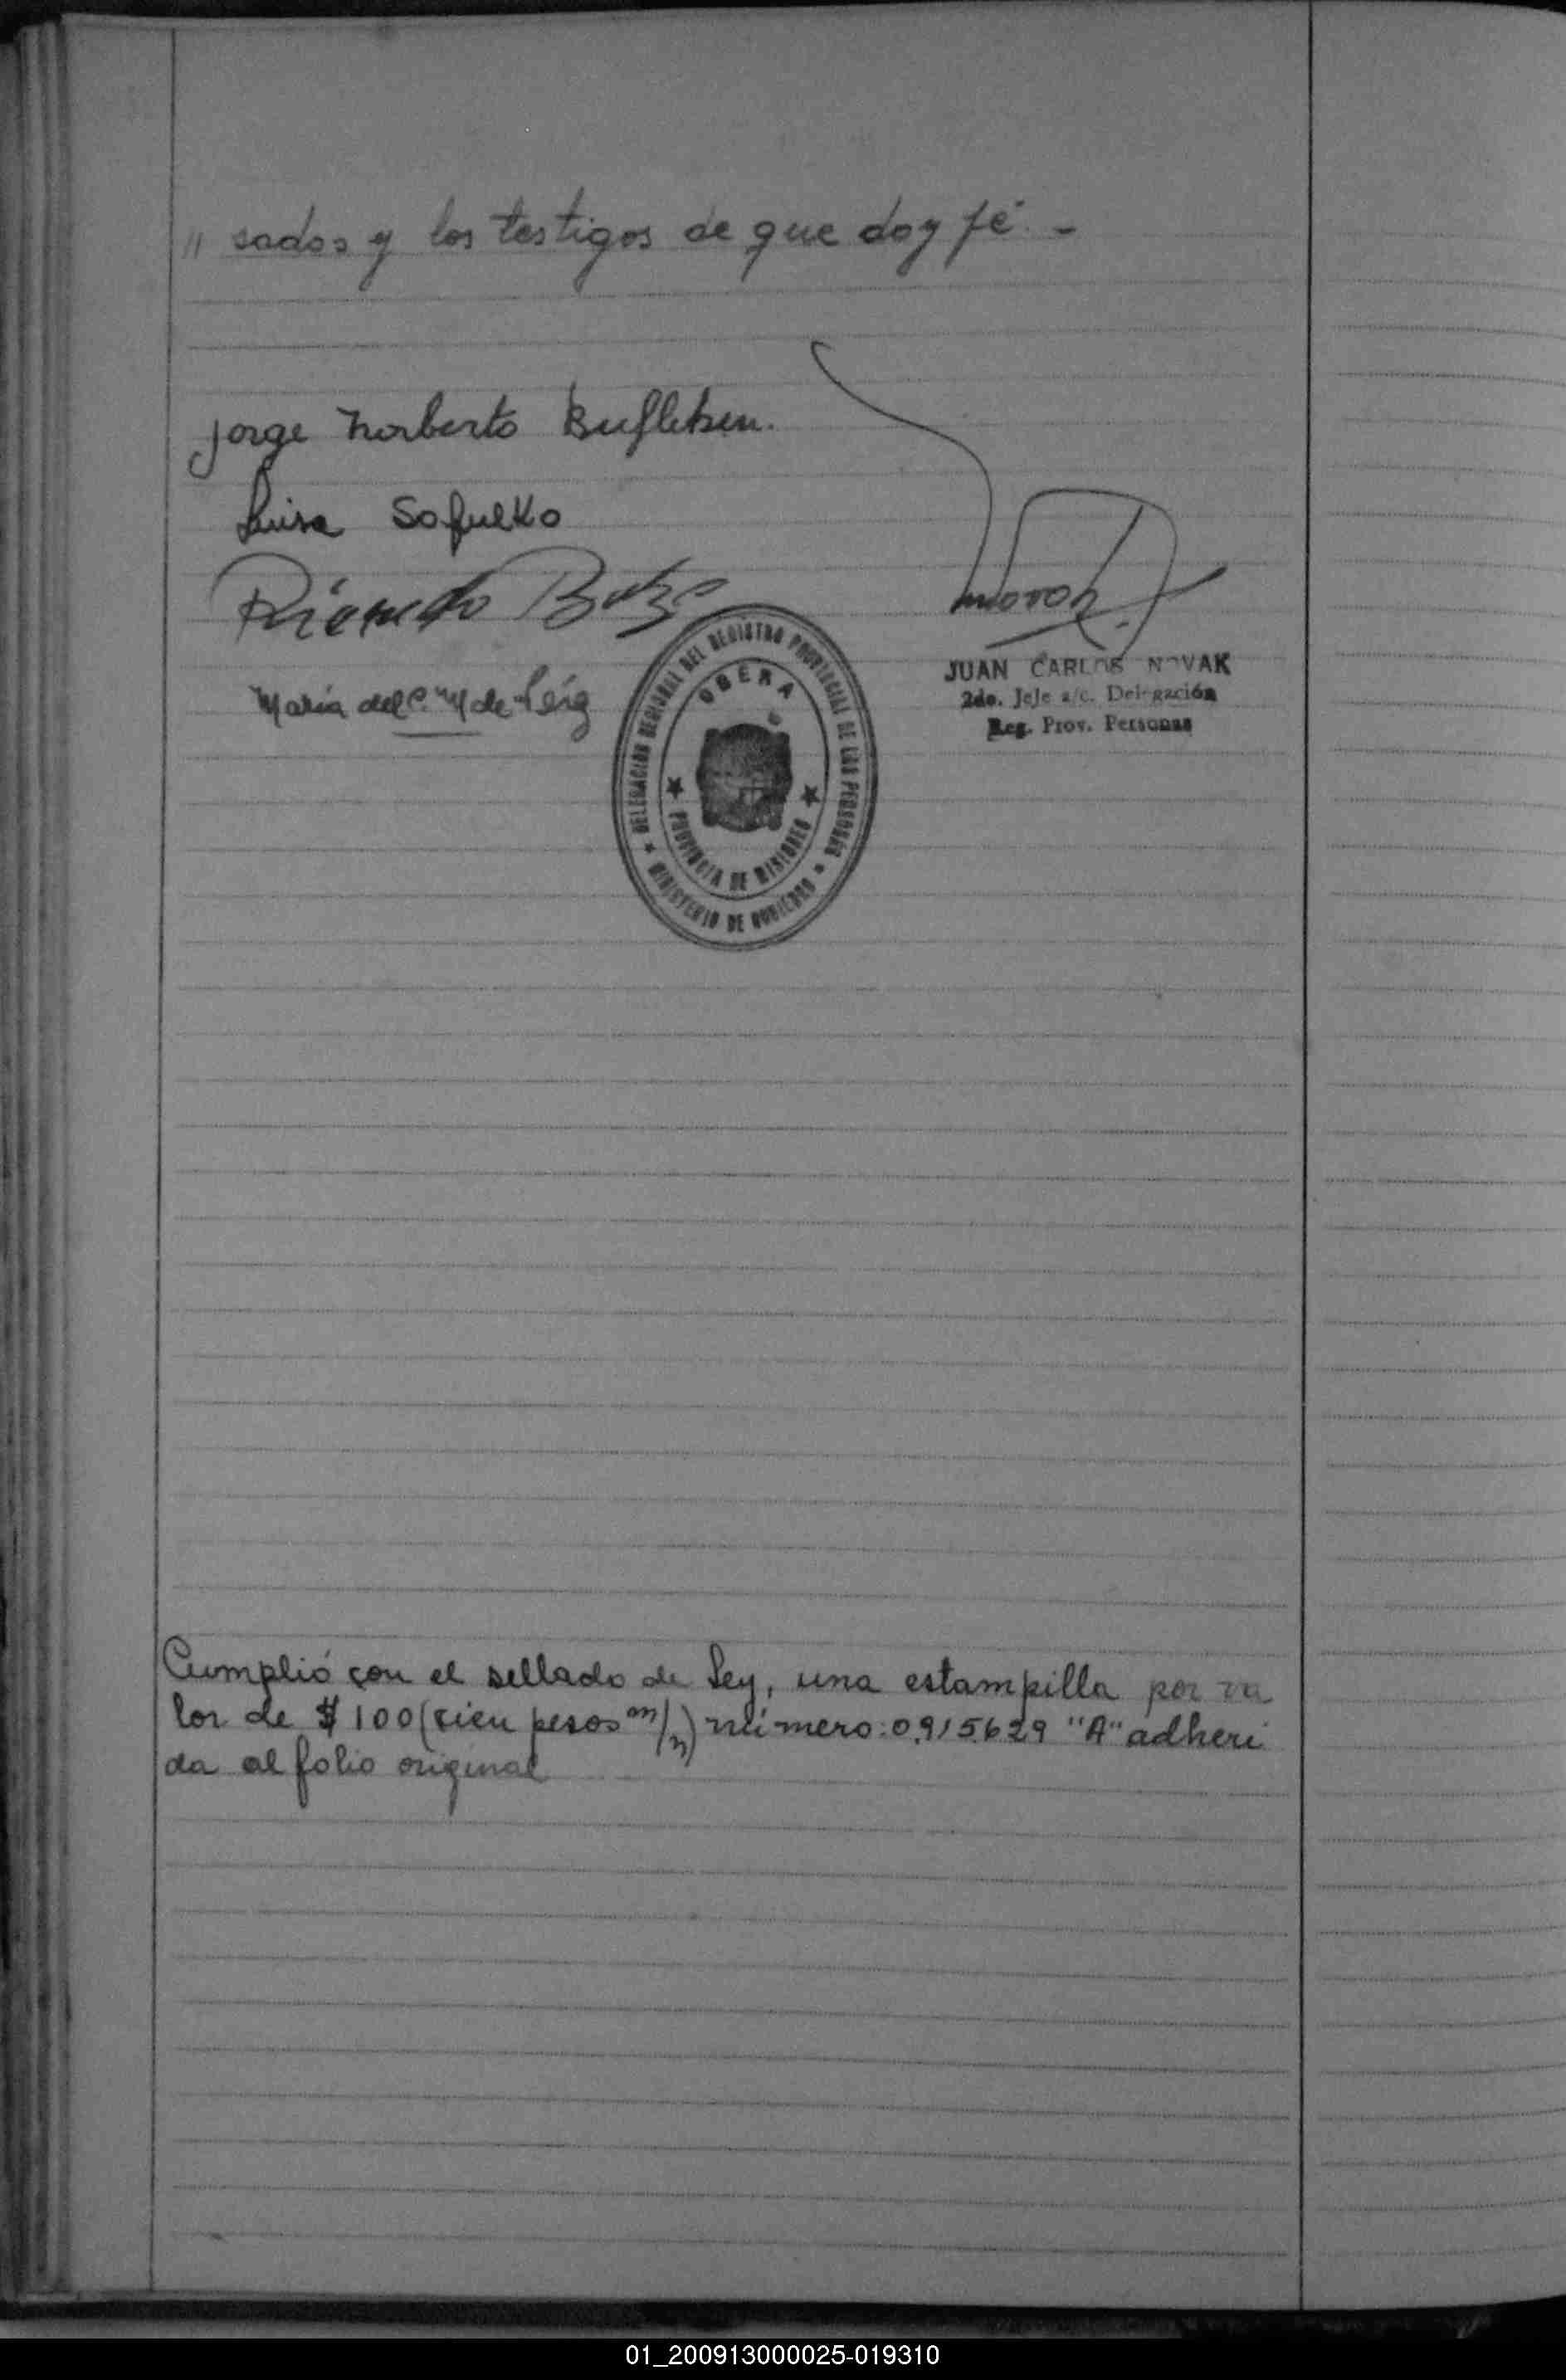 " sados y los testigos de que doy fé. -
Jorge Norberto Bufletsen.
Luisa Sofulko
Ricardo
María del C. M de
Novak
JUAN CARLOS NOVAK
2do. Jefe a/c. Delegación
Reg. Prov. Personas
DELEGACION REGIONAL DEL REGISTRO PROVINCIAL DE LAS PERSONAS
OBERA
PROVINCIA DE MISIONES
MINISTERIO DE GOBIERNO
Cumplió con el sellado de Ley, una estampilla por va
lor de $ 100 (cien pesos m/n) número: 0915629 "A" adheri
da al folio original
01_200913000025-019310